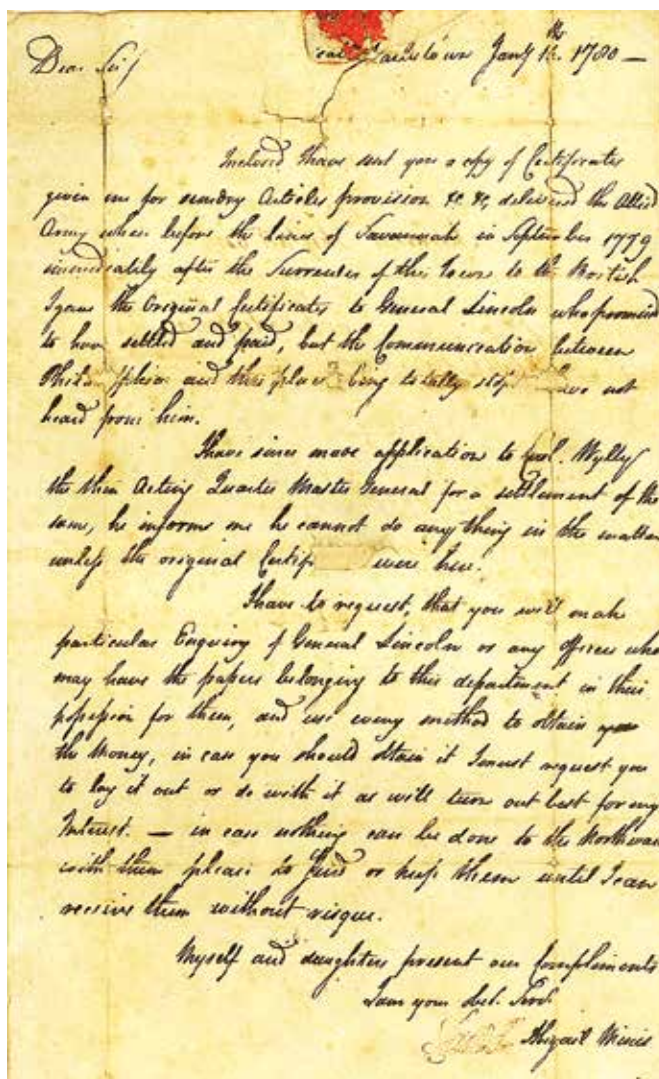 Dear Sir/
town Jany 1780 —
Inclosed I have sent you a copy of Certificates
given me for sundry Articles provision &c. &c, delivered the Allied
Army when before the lines of Savannah in September 1779
immediatily after the Surrender of this Town to the British
I gave the Original Certificates to General Lincoln who promised
to have settled and paid, but the Communication between
and this place being totally have not
heard from him.
I have since move application to Coll. Wylly
the then Acting Quarter Master General for a settlement of the
same, he informs me he cannot do any thing in the matter
unless the original were here.
I have to request, that you will make
particular Enquiry of General Lincoln or any officer who
may have the papers belonging to this department in their
possession for them, and use every method to obtain
the Money, in case you should obtain it I must request you
to lay it out or do with it as will turn out best for my
Interest. — in case nothing can be done to the Northward
with them please to or keep them until I can
receive them without risque.
Myself and daughters present our Compliments
I am your obt. Servt.
Abigail Minis